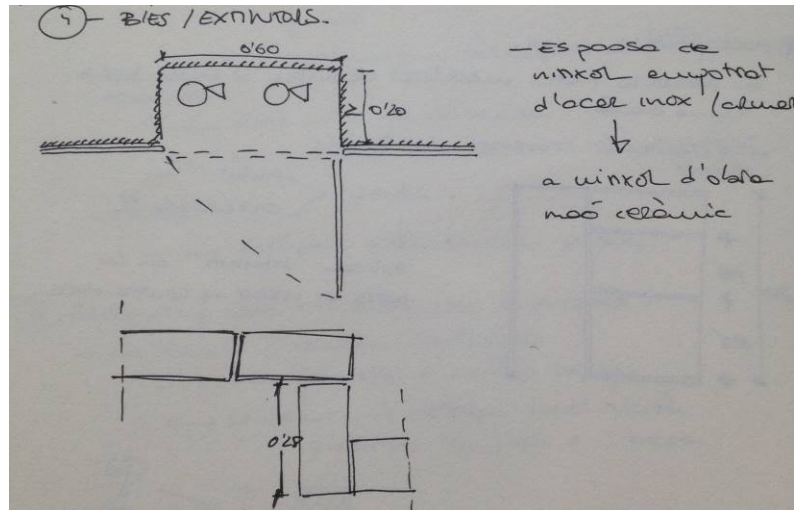 4 - BIES / EXTINTORS.
0'60
0'20
- ES passa de
ninxol empotrat
d'acer inox /armari
a ninxol d'obra
maó ceràmic
0'28